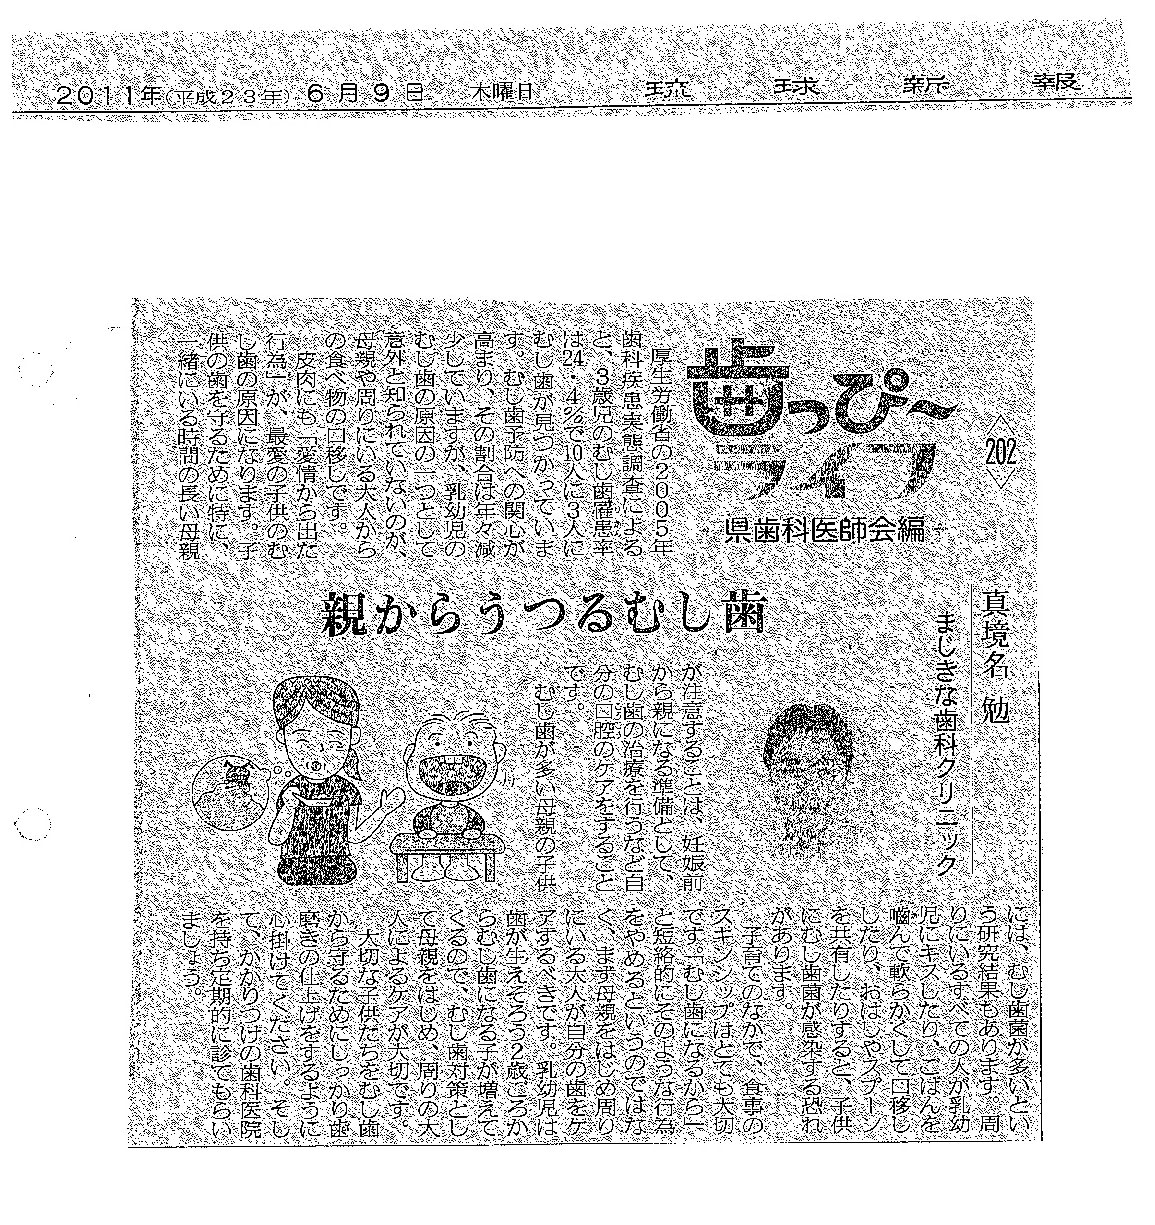 2011年(平成23年)6月9日 木曜日 琉球新報
歯っぴ〜
ライフ
202
県歯科医師会編
真境名 勉
まじきな歯科クリニック
親からうつるむし歯
厚生労働省の2005年
歯科疾患実態調査による
と、3歳児のむし歯罹患率
は24・4%で10人に3人に
むし歯が見つかっていま
す。むし歯予防への関心が
高まり、その割合は年々減
少していますが、乳幼児の
むし歯の原因の一つとして
意外と知られていないのが、
母親や周りにいる大人から
の食べ物の口移しです。
皮肉にも「愛情から出た
行為」が、最愛の子供のむ
し歯の原因になります。子
供の歯を守るために特に、
一緒にいる時間の長い母親
が注意することは、妊娠前
から親になる準備として、
むし歯の治療を行うなど自
分の口腔のケアをすること
です。
むし歯が多い母親の子供
には、むし歯菌が多いとい
う研究結果もあります。周
りにいるすべての人が乳幼
児にキスしたり、ごはんを
噛んで軟らかくして口移し
したり、おはしやスプーン
を共有したりすると、子供
にむし歯菌が感染する恐れ
があります。
子育てのなかで、食事の
スキンシップはとても大切
です。「むし歯になるから」
と短絡的にそのような行為
をやめるというのではな
く、まず母親をはじめ周り
にいる大人が自分の歯をケ
アするべきです。乳幼児は
歯が生えそろう2歳ごろか
らむし歯になる子が増えて
くるので、むし歯対策とし
て母親をはじめ、周りの大
人によるケアが大切です。
大切な子供たちをむし歯
から守るためにしっかり歯
磨きの仕上げをするように
心掛けてください。そし
て、かかりつけの歯科医院
を持ち定期的に診てもらい
ましょう。